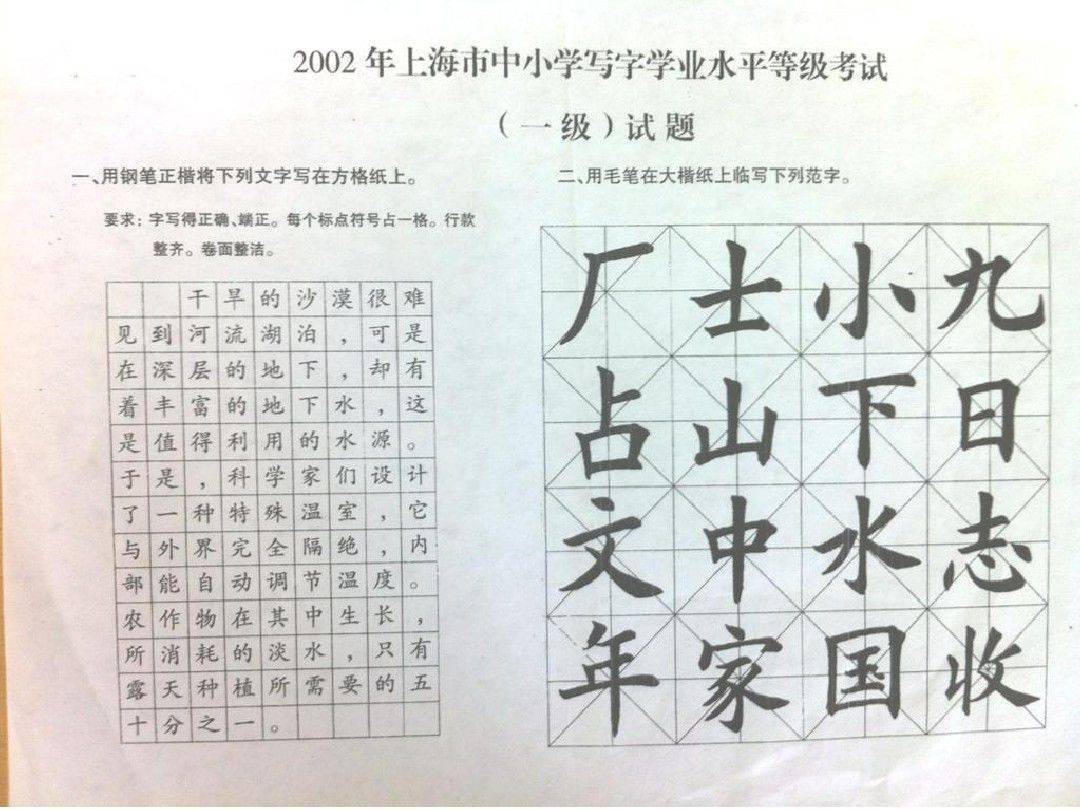 2002年上海市中小学写字学业水平等级考试
（一级）试题
一、用钢笔正楷将下列文字写在方格纸上。
要求：字写得正确、端正。每个标点符号占一格。行款
整齐。卷面整洁。
干旱的沙漠很难
见到河流湖泊，可是
在深层的地下，却有
着丰富的地下水，这
是值得利用的水源。
于是，科学家们设计
了一种特殊温室，它
与外界完全隔绝，内
部能自动调节温度。
农作物在其中生长，
所消耗的淡水，只有
露天种植所需要的五
十分之一。
二、用毛笔在大楷纸上临写下列范字。
厂士小九
占山下日
文中水志
年家国收